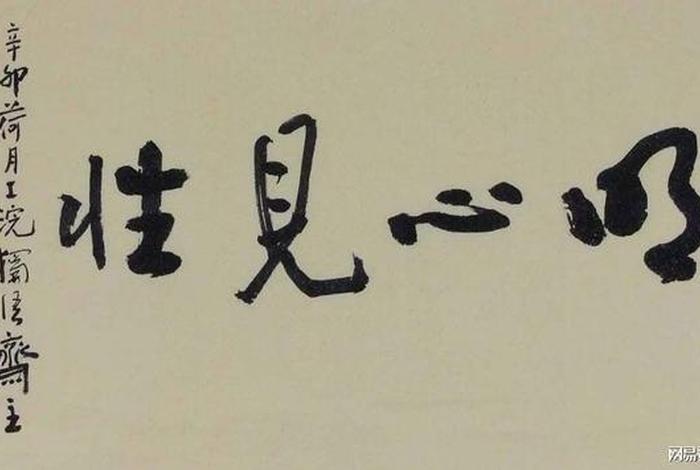 明心見性
辛卯荷月工浣獨活齋主
网易